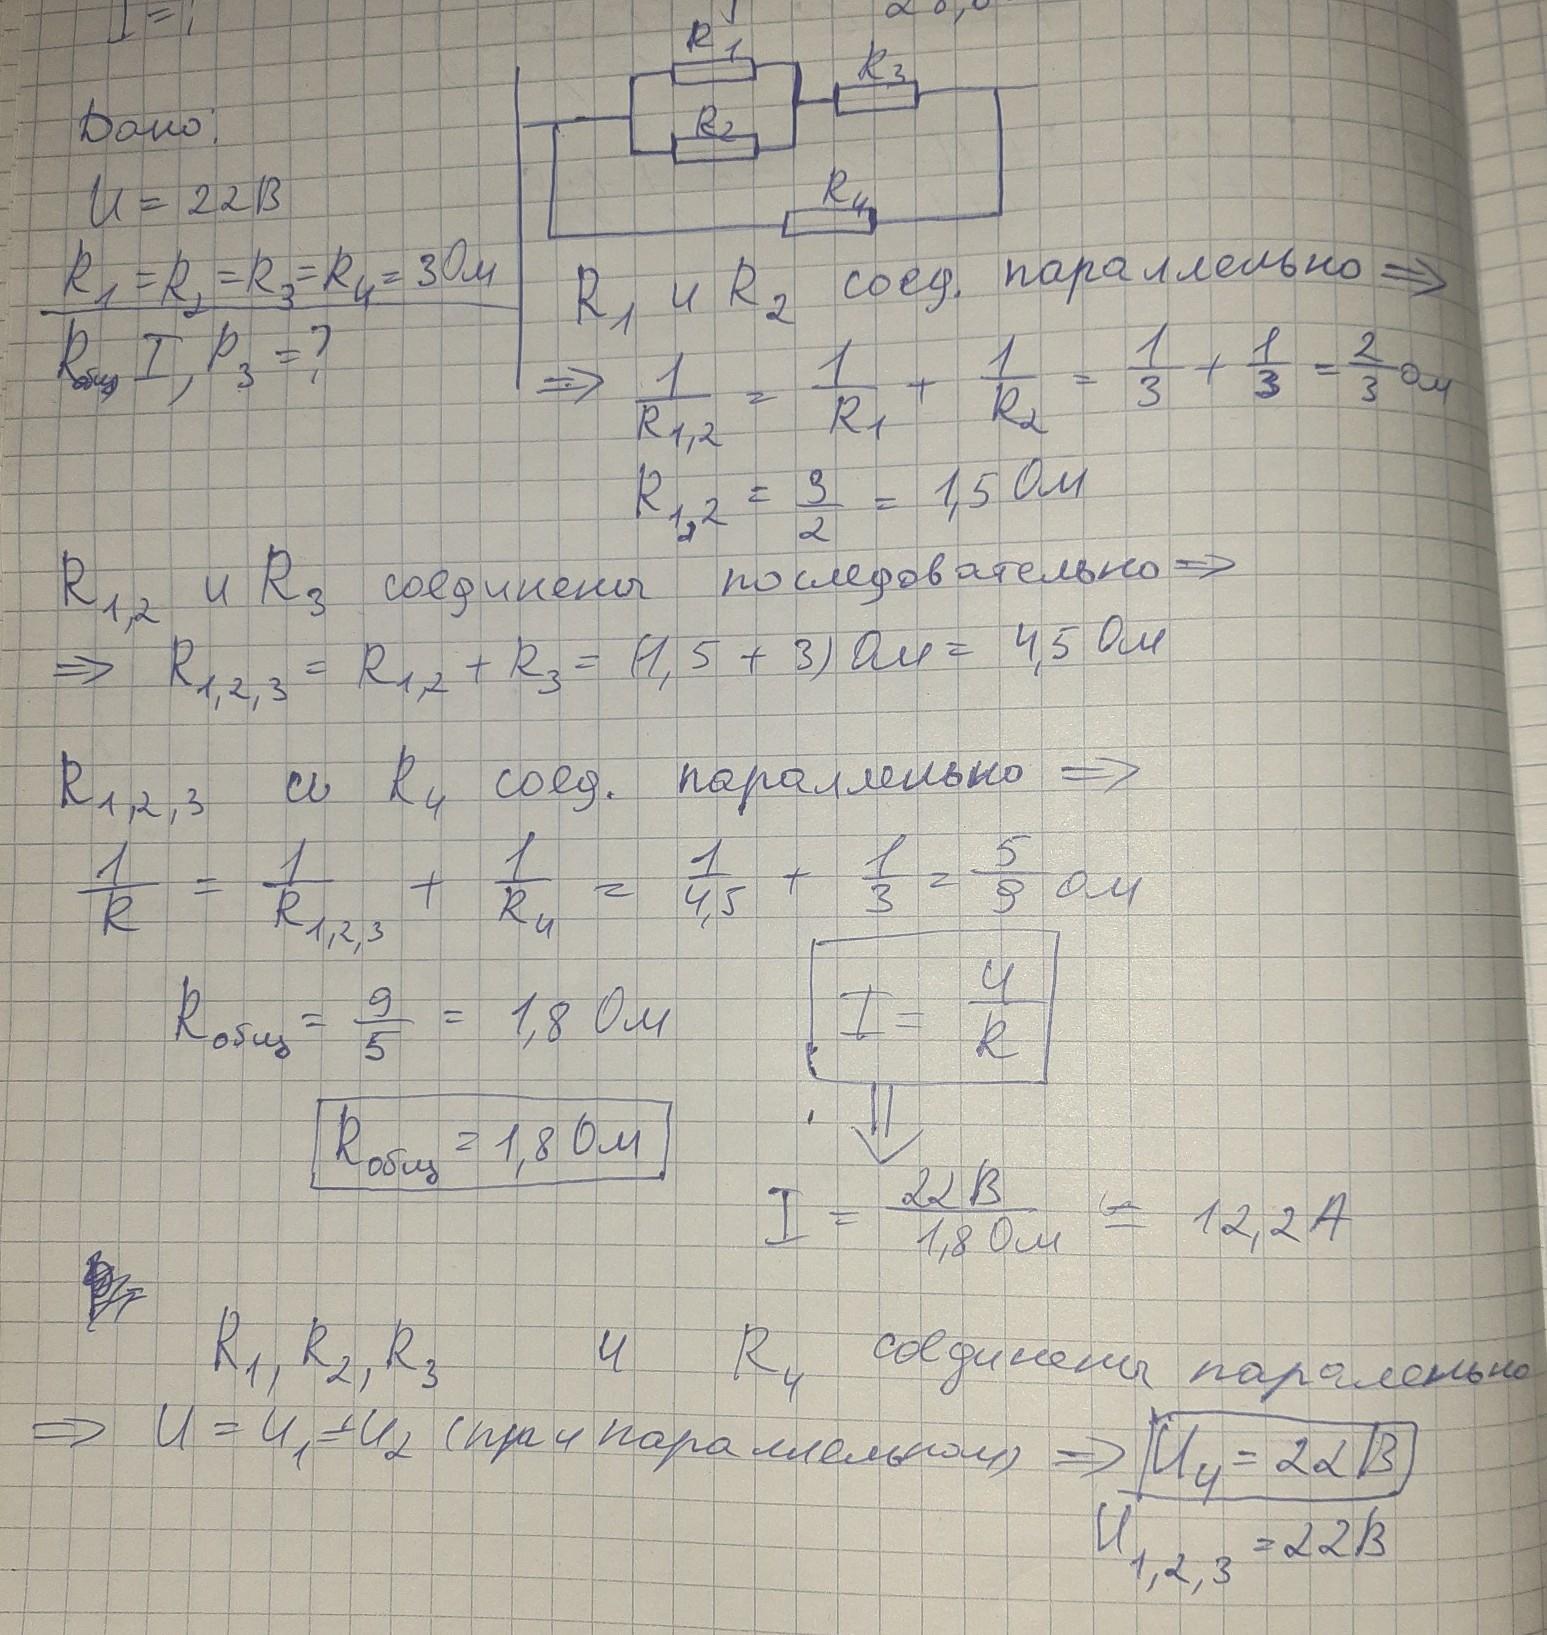 I = ?
R1
R3
Дано:
R2
U = 22В
R4
R1 = R2 = R3 = R4 = 3Ом
R1 и R2 соед. параллельно ⇒
Rобщ, I, P3 = ?
⇒ 1/R1,2 = 1/R1 + 1/R2 = 1/3 + 1/3 = 2/3 ом
R1,2 = 3/2 = 1,5 Ом
R1,2 и R3 соединены последовательно ⇒
⇒ R1,2,3 = R1,2 + R3 = (1,5 + 3) Ом = 4,5 Ом
R1,2,3 со R4 соед. параллельно ⇒
1/R = 1/R1,2,3 + 1/R4 = 1/4,5 + 1/3 = 5/9 ом
Rобщ = 9/5 = 1,8 Ом
I = U/R
⇓
Rобщ = 1,8 Ом
I = 22В/1,8Ом ≈ 12,2А
R1, R2, R3 и R4 соединены параленьно
⇒ U = U1 = U2 (при параллельном) ⇒ U4 = 22В
U1,2,3 = 22В